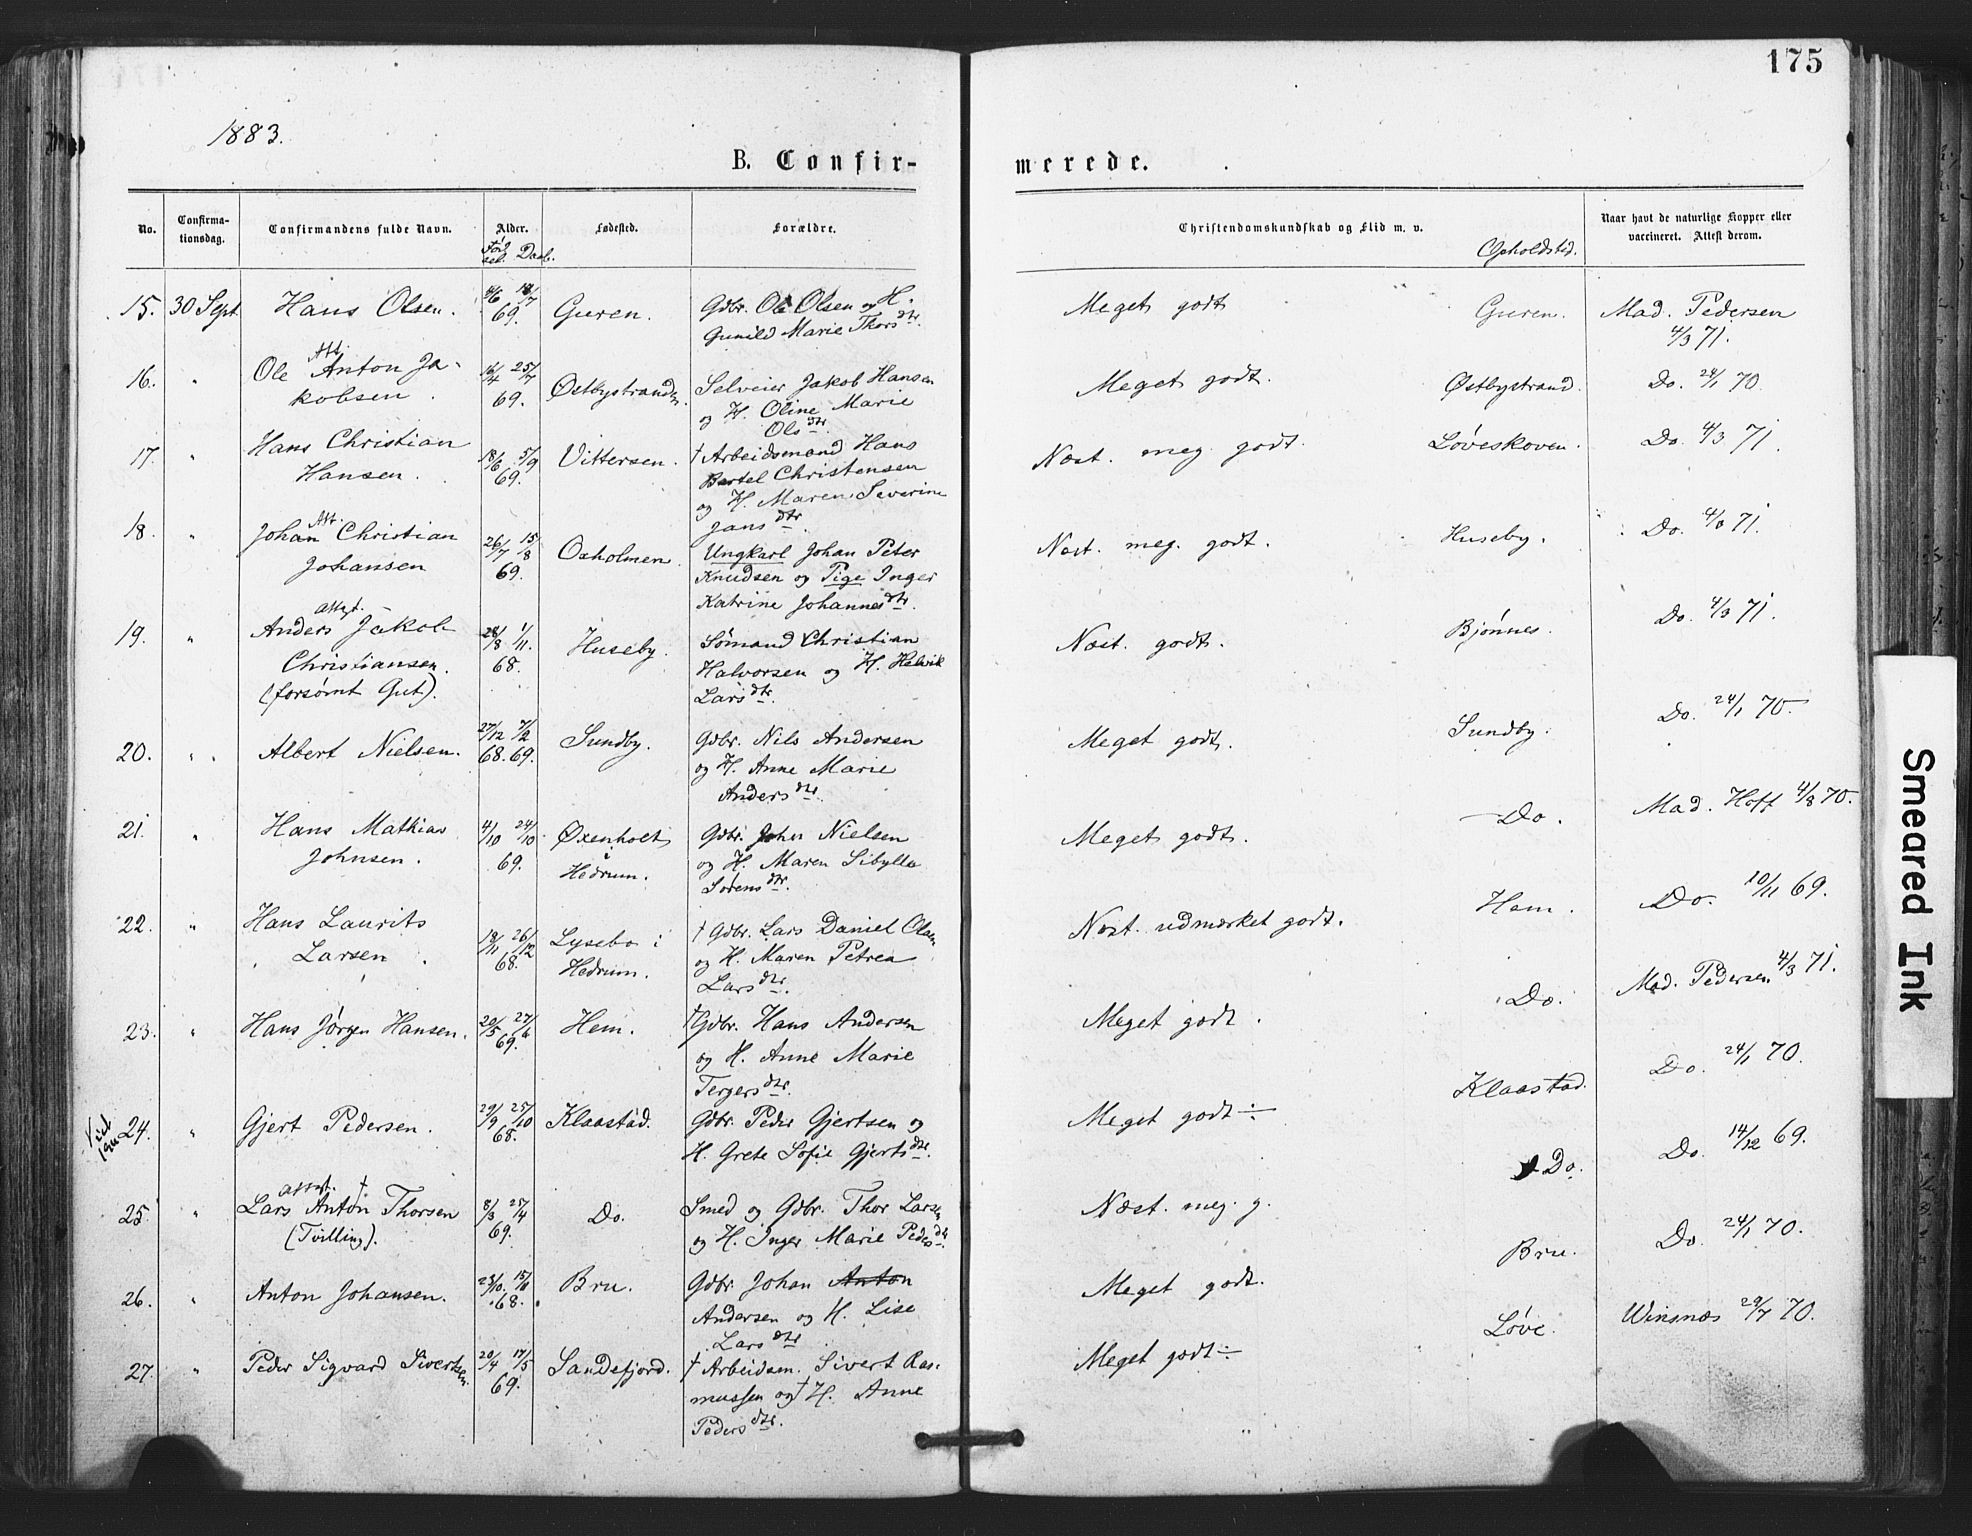 175
1883.
B. Confir-
merede.
No.
Confirma-
tionsdag.
Confirmandens fulde Navn.
Alder.
Fød-
sel. Daab.
Fødested.
Forældre.
Christendomskundskab og Flid m. v.
Opholdsted.
Naar havt de naturlige Kopper eller
vaccineret. Attest derom.
15. 30 Sept. Hans Olsen.
4/6 18/7
69.
Guren.
Gdbr. Ole Olsen og H.
Gunild Marie Thorsdtr.
Meget godt
Guren.
Mad. Pedersen
4/3 71.
16. "
Att.
Ole Anton Ja-
kobsen.
16/4 25/7
69.
Østbystranden.
Selveier Jakob Hansen
og H. Oline Marie
Olsdtr.
Meget godt.
Østbystrand.
Do. 24/1 70.
17. "
Hans Christian
Hansen.
18/6 5/9
69.
Vittersen.
† Arbeidsmand Hans
Bertel Christensen
og H. Maren Severine
Jansdtr.
Næst. meg. godt.
Løveskoven.
Do. 4/3 71.
18. "
Att.
Johan Christian
Johansen
26/7 15/8
69.
Oxholmen.
Ungkarl Johan Peter
Knudsen og Pige Inger
Katrine Johannesdtr.
Næst. meg. godt.
Huseby.
Do. 4/3 71.
19. "
attest.
Anders Jakob
Christiansen
(forsømt Gut).
28/8 1/11.
68.
Huseby.
Sømand Christian
Halvorsen og H. Helvik
Larsdtr.
Næst. godt.
Bjønnes.
Do. 4/3 71.
20. "
Albert Nielsen.
27/12 7/2
68. 69.
Sundby.
Gdbr. Nils Andersen
og H. Anne Marie
Andersdtr.
Meget godt.
Sundby.
Do. 24/1 70.
21. "
Hans Mathias
Johnsen.
4/10 24/10
69.
Øxenholt
i
Hedrum.
Gdbr. John Nielsen
og H. Maren Sibylla
Sørensdtr.
Meget godt.
Do.
Mad. Hoff 4/8 70.
22. "
Hans Laurits
Larsen.
18/11 26/12
68.
Lysebo i
Hedrum.
† Gdbr. Lars Daniel Olsen
og H. Maren Petrea
Larsdtr.
Næst. udmærket godt.
Hem.
Do. 10/11 69.
23. "
Hans Jørgen Hansen.
20/5 27/6
69.
Hem.
† Gdbr. Hans Andersen
og H. Anne Marie
Tergersdtr.
Meget godt.
Do.
Mad. Pedersen 4/3 71.
24. "
Gjert Pedersen.
29/9 25/10
68.
Klaastad.
Gdbr. Peder Gjertsen og
H. Grete Sofie Gjertsdtr.
Meget godt ÷
Klaastad.
Do. 24/1 70.
25. "
attest. †
Lars Anton Thorsen
(Tvilling).
8/3 25/4
69.
Do.
Smed og Gdbr. Thor Larsen
og H. Inger Marie Pedersdtr.
Næst. meg. g.
Do.
Do. 14/12 69.
26. "
Anton Johansen.
23/10. 15/11
68.
Bru.
Gdbr. Johan Anton
Andersen og H. Lise
Larsdtr.
Meget godt.
Bru.
Do. 24/1 70.
27. "
Peder Sigvard Sivertsen.
20/4 17/5
69.
Sandefjord.
† Arbeidsm. Sivert Ras-
mussen og † H. Anne
Pedersdtr.
Meget godt ÷
Løve.
Winsnæs 29/7 70.
Smeared Ink